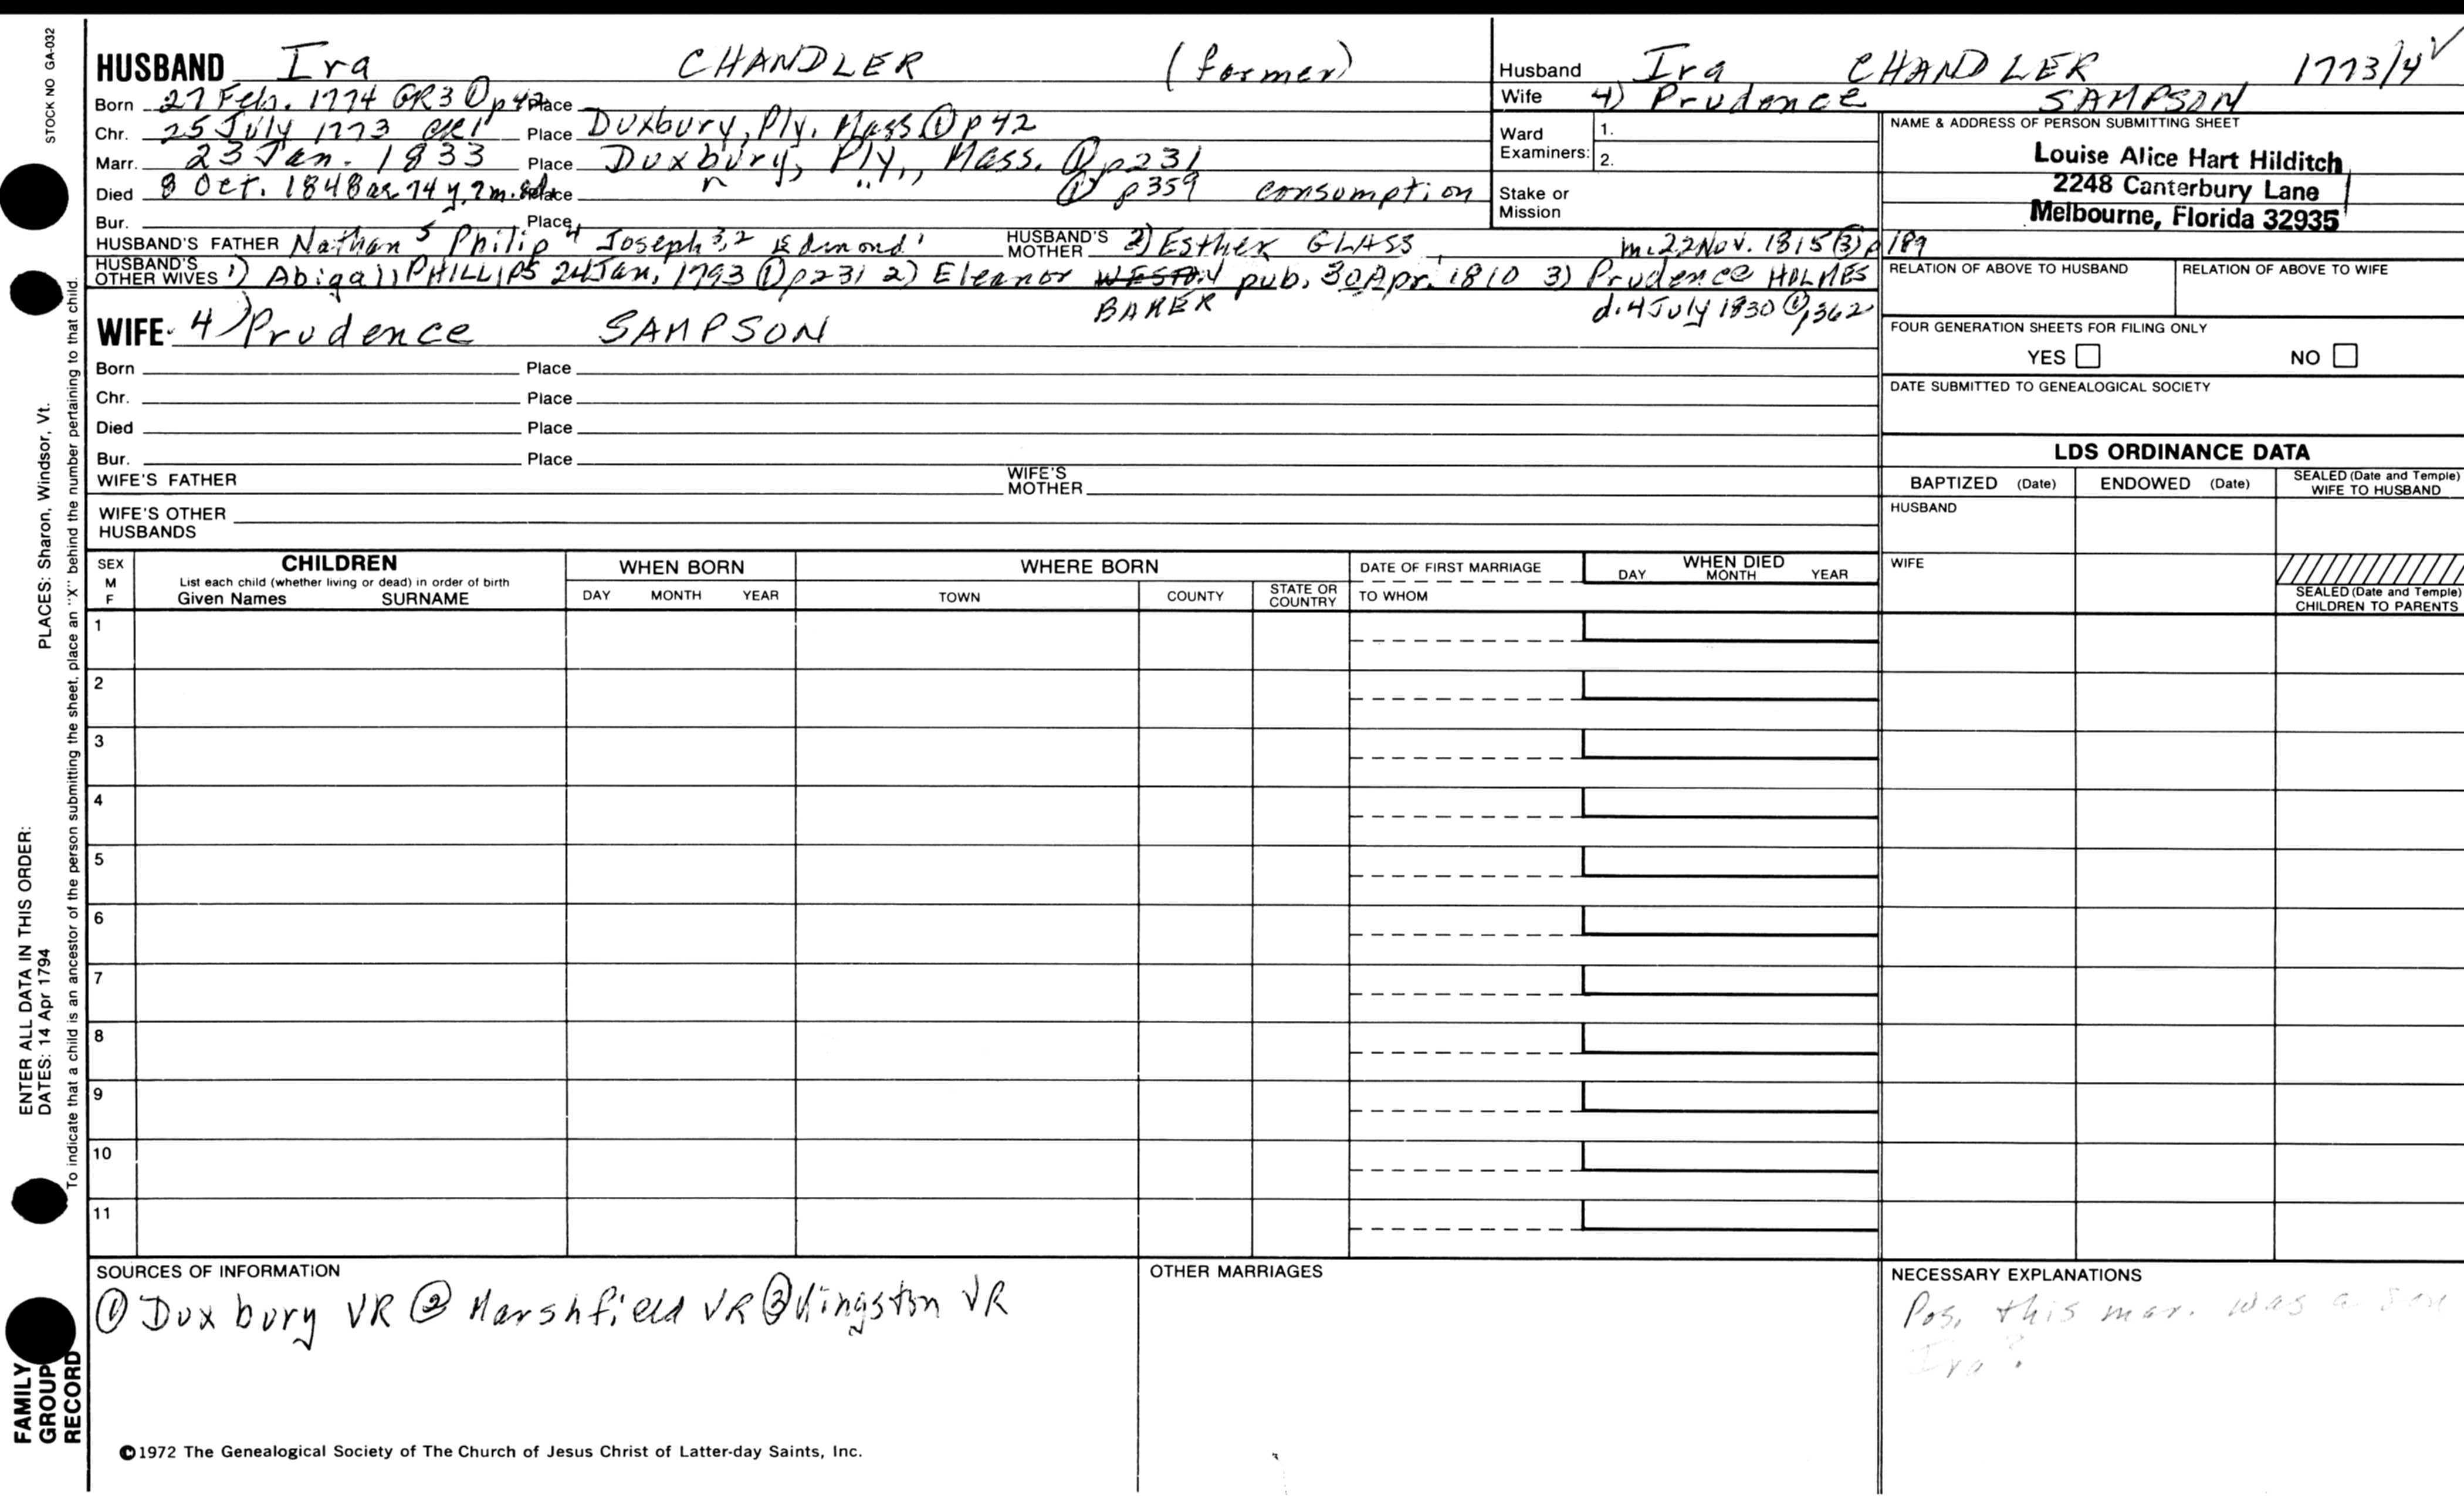 STOCK NO GA-032
HUSBAND Ira CHANDLER (farmer)
Born 27 Feb. 1774 GR3 ① p42 Place
Chr. 25 July 1773 CR1 Place Duxbury, Ply. Mass ① p 42
Marr. 23 Jan. 1833 Place Duxbury, Ply., Mass. ① p231
Died 8 Oct. 1848 ae 74 y. 7m. Place " " ① p359 consumption
Bur. Place
HUSBAND'S FATHER Nathan 5 Philip 4 Joseph 3,2 Edmond 1 HUSBAND'S MOTHER 2) Esther GLASS m. 22 Nov. 1815 ③ p189
HUSBAND'S OTHER WIVES 1) Abigail PHILLIPS 24 Jan. 1793 ① p231 2) Eleanor WESTON pub. 30 Apr. 1810 3) Prudence HOLMES
BAKER d. 4 July 1830 ① p362
WIFE 4) Prudence SAMPSON
Born Place
Chr. Place
Died Place
Bur. Place
WIFE'S FATHER WIFE'S MOTHER
WIFE'S OTHER HUSBANDS
Husband Ira CHANDLER 1773/4 ✓
Wife 4) Prudence SAMPSON
Ward Examiners: 1.
2.
Stake or Mission
NAME & ADDRESS OF PERSON SUBMITTING SHEET
Louise Alice Hart Hilditch
2248 Canterbury Lane
Melbourne, Florida 32935
RELATION OF ABOVE TO HUSBAND RELATION OF ABOVE TO WIFE
FOUR GENERATION SHEETS FOR FILING ONLY
YES NO
DATE SUBMITTED TO GENEALOGICAL SOCIETY
LDS ORDINANCE DATA
BAPTIZED (Date) ENDOWED (Date) SEALED (Date and Temple) WIFE TO HUSBAND
HUSBAND
WIFE
SEALED (Date and Temple) CHILDREN TO PARENTS
SEX M F
CHILDREN
List each child (whether living or dead) in order of birth
Given Names SURNAME
WHEN BORN
DAY MONTH YEAR
WHERE BORN
TOWN COUNTY STATE OR COUNTRY
DATE OF FIRST MARRIAGE
TO WHOM
WHEN DIED
DAY MONTH YEAR
1
2
3
4
5
6
7
8
9
10
11
SOURCES OF INFORMATION
① Duxbury VR ② Marshfield VR ③ Kingston VR
OTHER MARRIAGES
NECESSARY EXPLANATIONS
Pos. this mar. was a son
Ira?
©1972 The Genealogical Society of The Church of Jesus Christ of Latter-day Saints, Inc.
ENTER ALL DATA IN THIS ORDER:
DATES: 14 Apr 1794 PLACES: Sharon, Windsor, Vt.
To indicate that a child is an ancestor of the person submitting the sheet, place an "X" behind the number pertaining to that child.
FAMILY
GROUP
RECORD